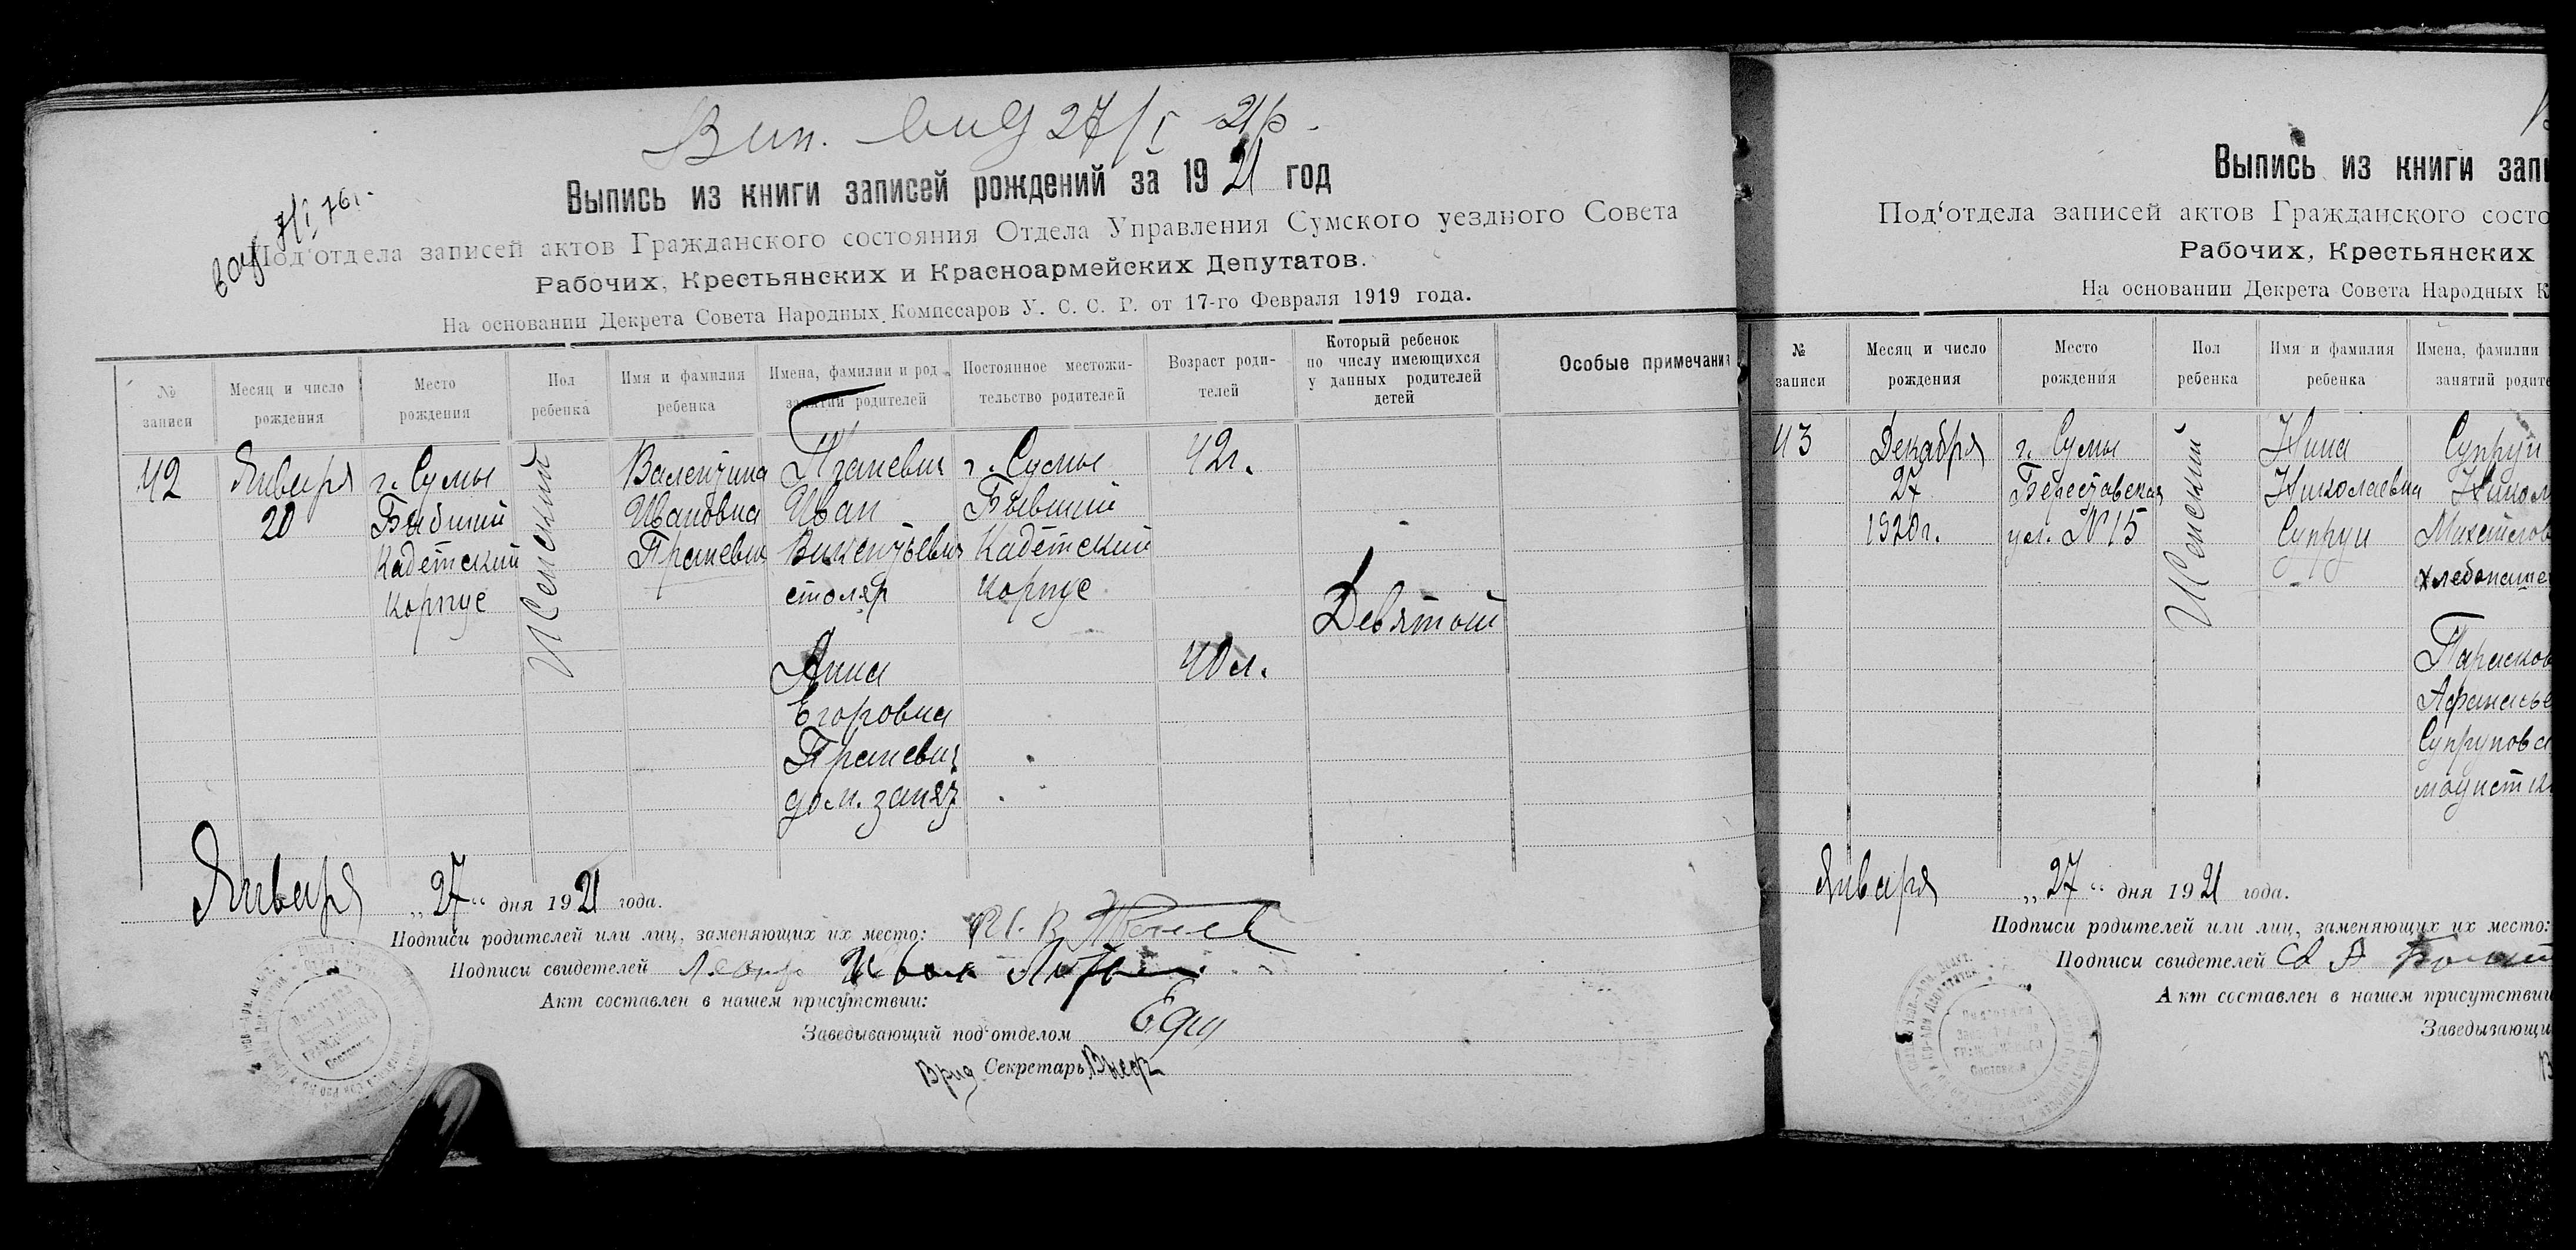 Вип. вид 27/I 21р.
7/I 76г.
Выпись из книги записей рождений за 1921 год
Под‘отдела записей актов Гражданского состояния Отдела Управления Сумского уездного Совета
Рабочих, Крестьянских и Красноармейских Депутатов.
На основании Декрета Совета Народных Комиссаров У. С. С. Р. от 17-го Февраля 1919 года.
№ записи
Месяц и число рождения
Место рождения
Пол ребенка
Имя и фамилия ребенка
Имена, фамилии и род занятий родителей
Постоянное местожительство родителей
Возраст родителей
Который ребенок по числу имеющихся у данных родителей детей
Особые примечания
42
Января
20
г. Сумы
Бывший
Кадетский
корпус
Женский
Валентина
Ивановна
Иван
Викентьевич
столяр
Анна
Егоровна
дом. занят.
г. Сумы
Бывший
Кадетский
корпус
42г.
40 л.
Девятый
Января „27“ дня 1921 года.
Подписи родителей или лиц, заменяющих их место:
Подписи свидетелей Иван
Акт составлен в нашем присутствии:
Заведывающий под‘отделом
Врид. Секретарь
Выпись из книги запи
Под‘отдела записей актов Гражданского состо
Рабочих, Крестьянских
На основании Декрета Совета Народных К
№ записи
Месяц и число рождения
Место рождения
Пол ребенка
Имя и фамилия ребенка
Имена, фамилии
занятий родите
43
Декабря
27
1920г.
г. Сумы
Берестовская
ул. №15
Женский
Нина
Николаевна
Супрун
Супрун
Никол
Михайлов
хлебопаше
Парасков
Афанасье
Супрунова
модистк
Января „27“ дня 1921 года.
Подписи родителей или лиц, заменяющих их место:
Подписи свидетелей
Акт составлен в нашем присутствии
Заведывающи